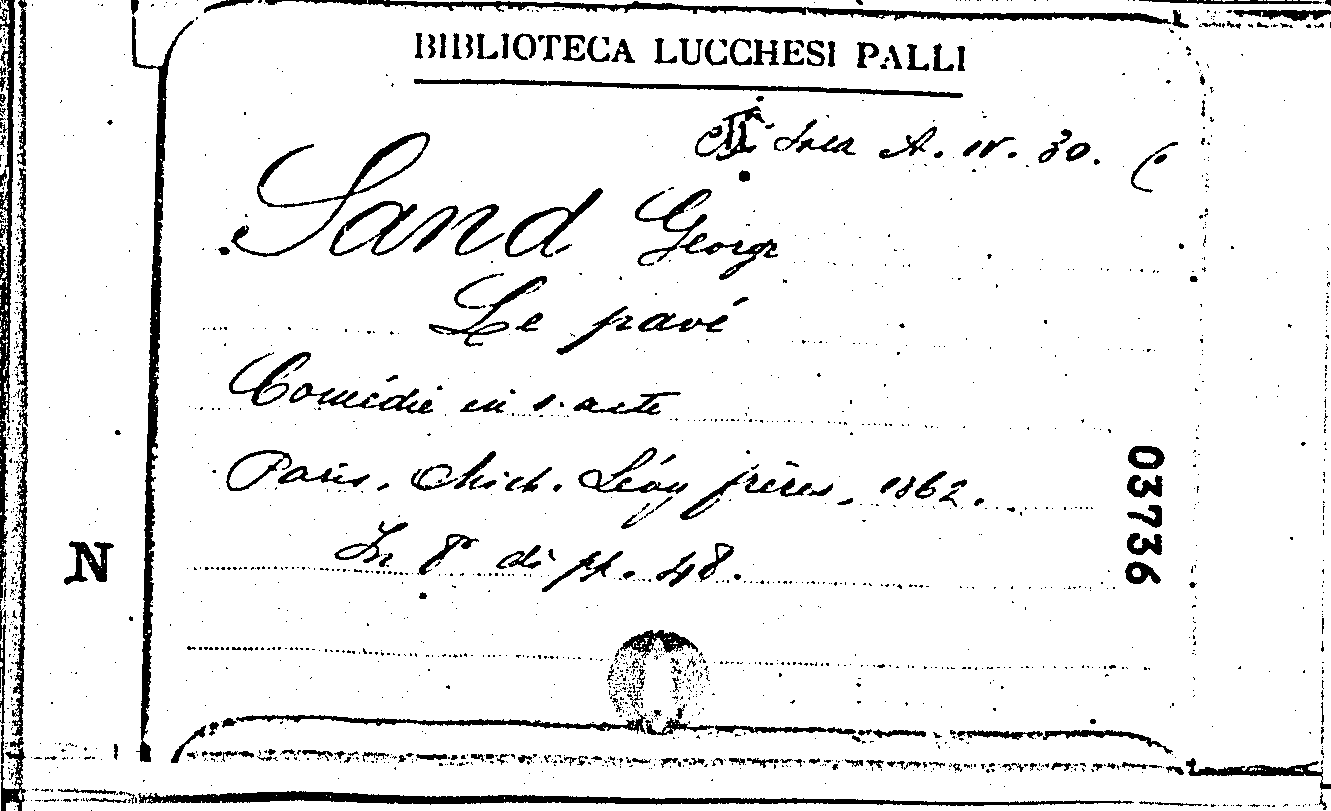 BIBLIOTECA LUCCHESI PALLI
Sala A. IV. 30. (
Sand George
Le pavé
Comédie en 1. acte
Paris, Mich. Lévy frères, 1862.
In 8º di pp. 48.
03736
N